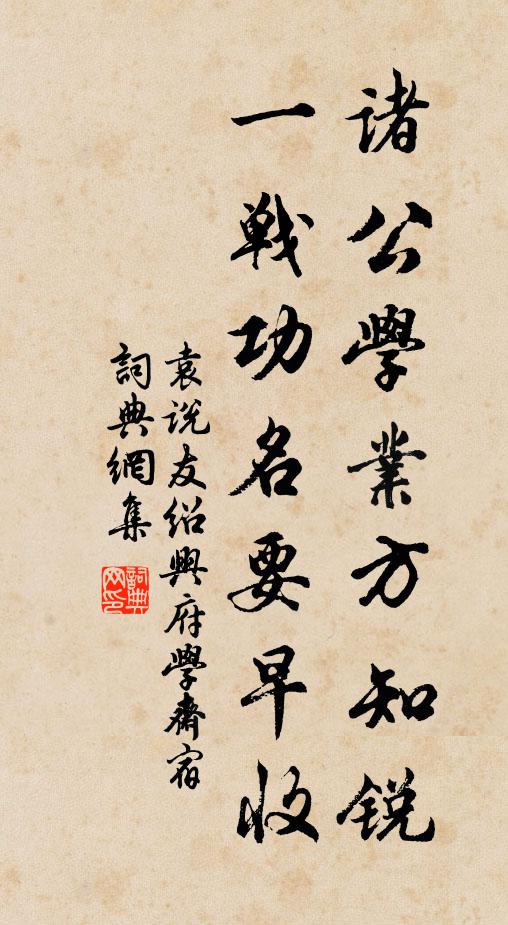 諸公學業方知銳
一戰功名要早收
袁說友紹興府學齋宿
詞典網集
詞典網印